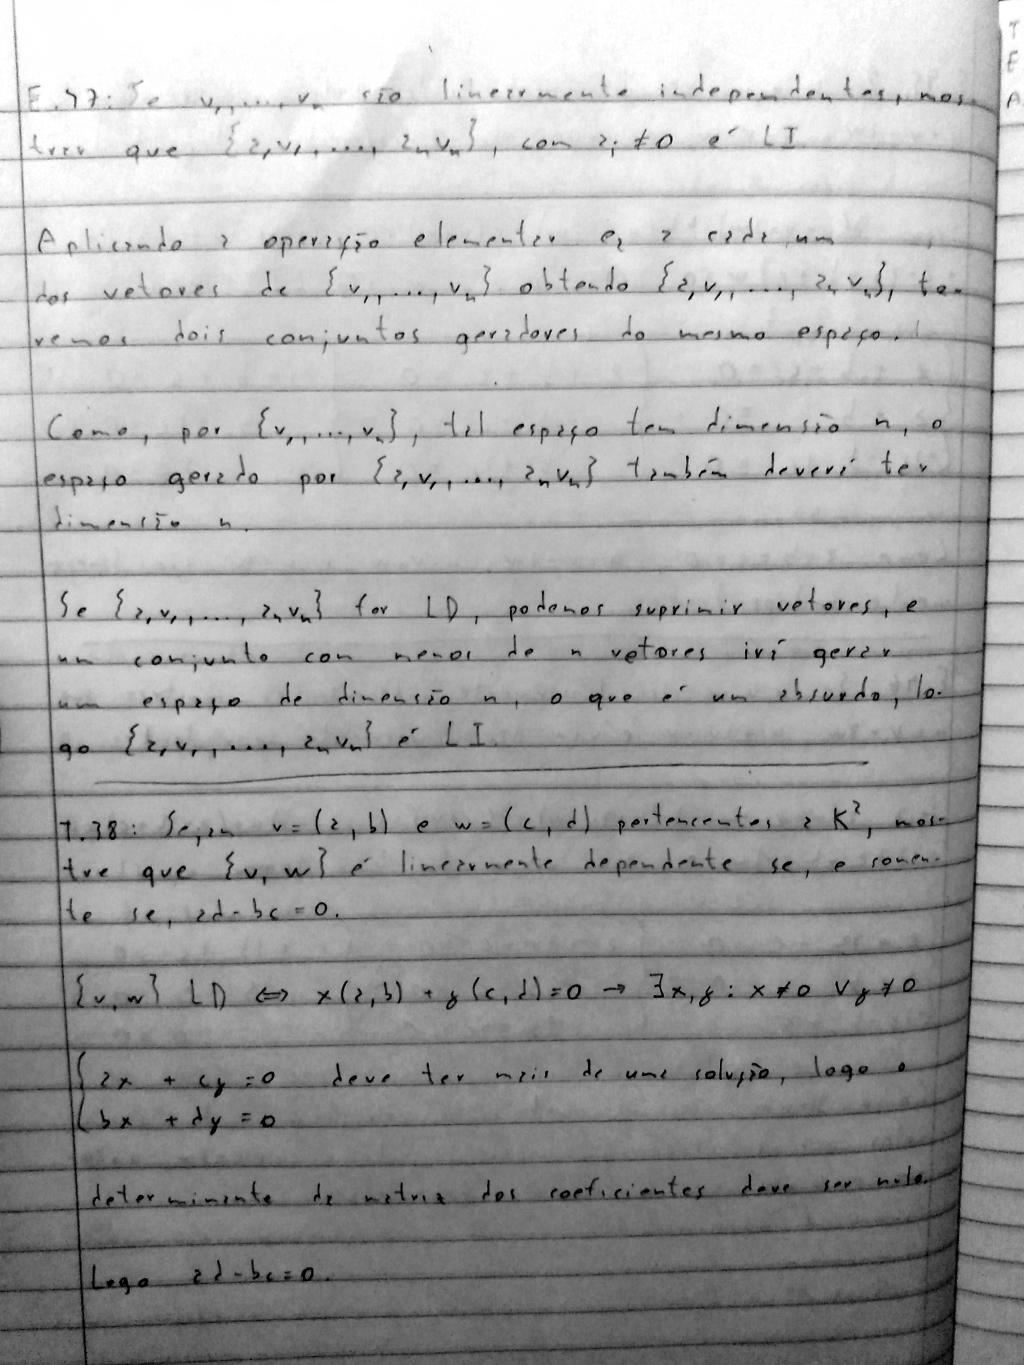 E.47: Se v₁, ..., vₙ são linearmente independentes, mos-
trar que {a₁v₁, ..., aₙvₙ}, com aᵢ ≠ 0 é LI
Aplicando a operação elementar e₂ a cada um
dos vetores de {v₁, ..., vₙ} obtendo {a₁v₁, ..., aₙvₙ}, te-
remos dois conjuntos geradores do mesmo espaço.
Como, por {v₁, ..., vₙ}, tal espaço tem dimensão n, o
espaço gerado por {a₁v₁, ..., aₙvₙ} também deverá ter
dimensão n.
Se {a₁v₁, ..., aₙvₙ} for LD, podemos suprimir vetores, e
um conjunto com menos de n vetores irá gerar
um espaço de dimensão n, o que é um absurdo, lo-
go {a₁v₁, ..., aₙvₙ} é LI.
T.38: Sejam v = (a, b) e w = (c, d) pertencentes a K², mos-
tre que {v, w} é linearmente dependente se, e somen-
te se, ad - bc = 0.
{v, w} LD ⇔ x(a, b) + y(c, d) = 0 → ∃x, y : x ≠ 0 ∨ y ≠ 0
{ax + cy = 0 deve ter mais de uma solução, logo o
bx + dy = 0
determinante da matriz dos coeficientes deve ser nulo.
Logo ad - bc = 0.
T
E
A